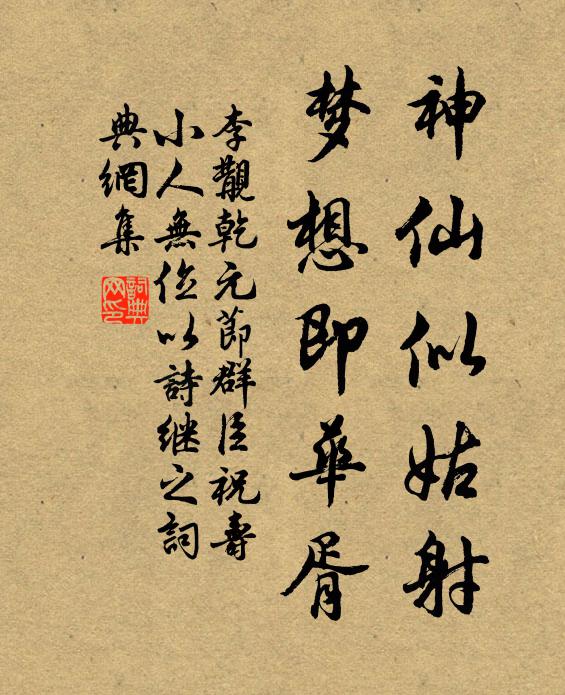 神仙似姑射
梦想即華胥
李觀乾元節群臣祝壽
小人無位以詩继之詞
典網集
詞典網印